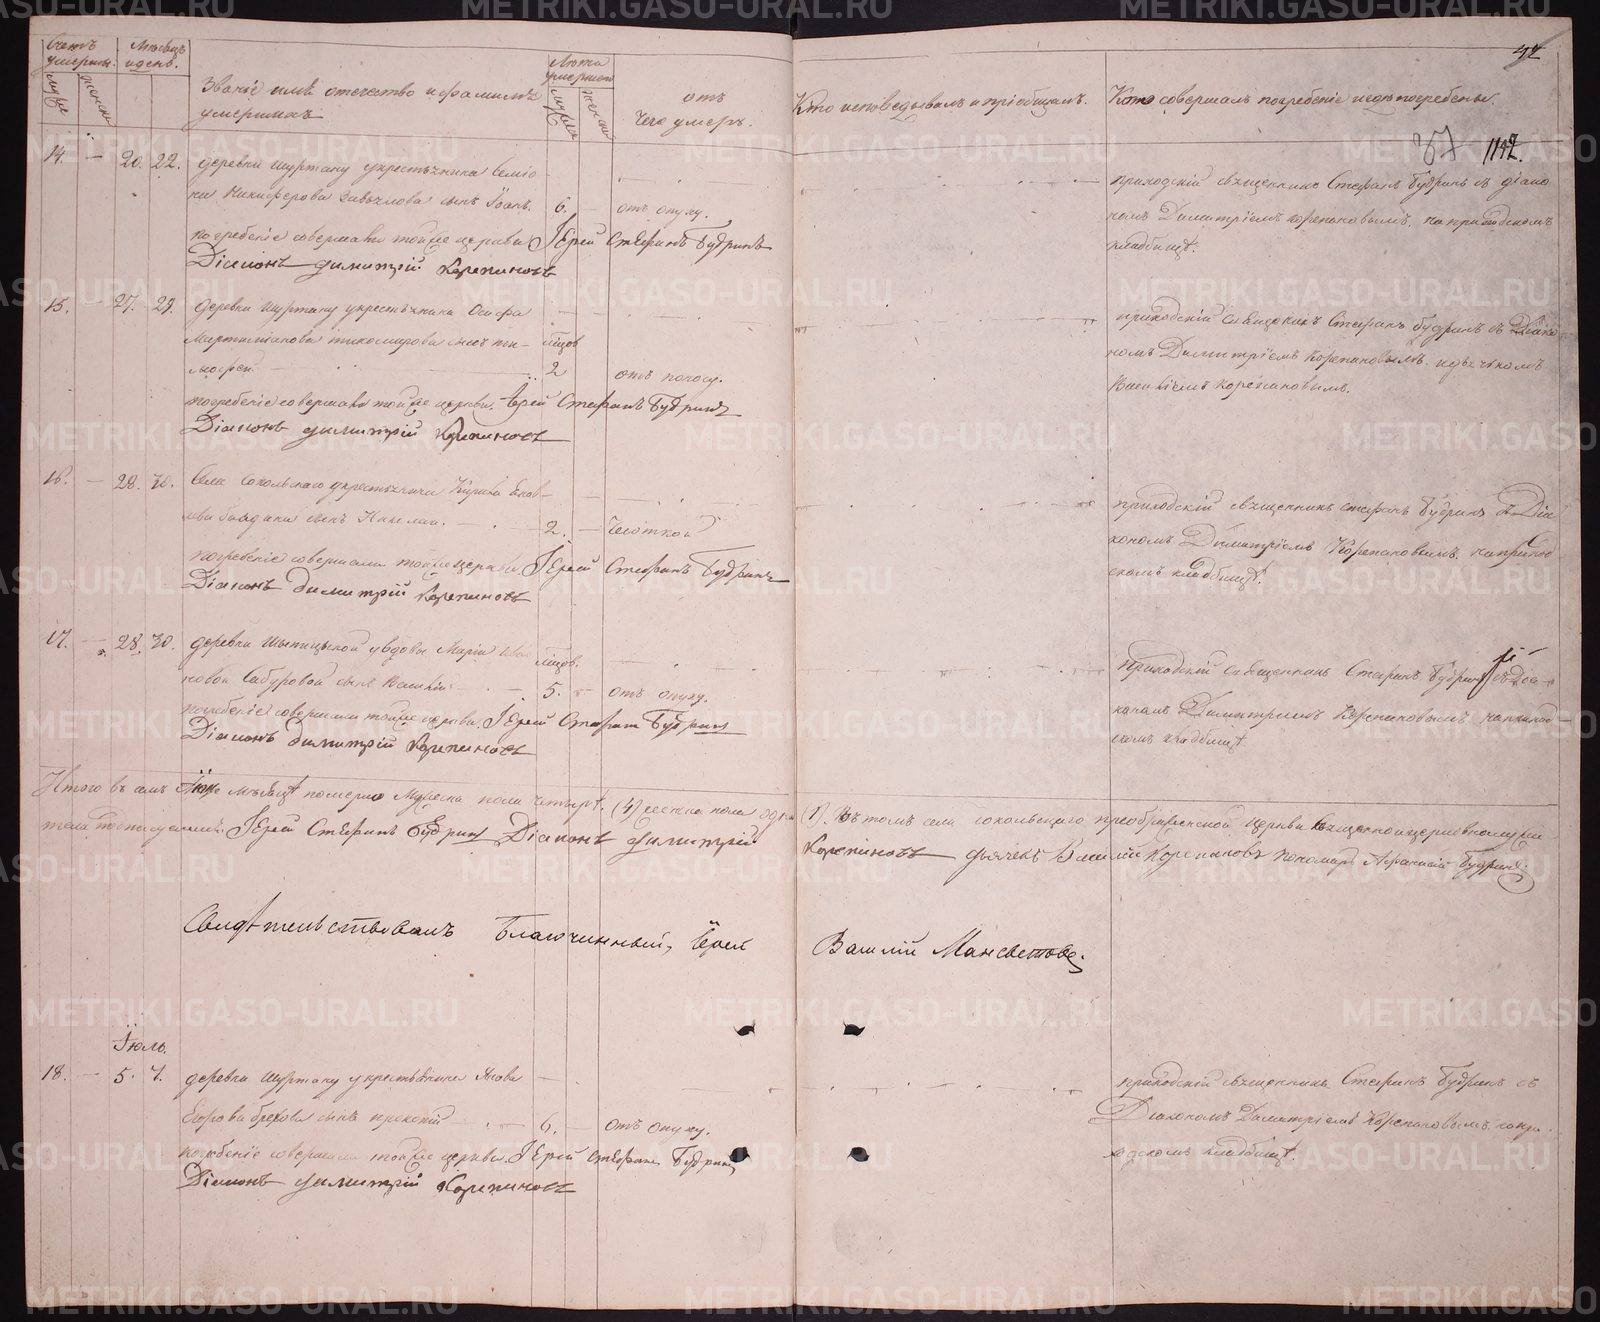 METRIKI.GASO-URAL.RU
42
Счетъ умерш.
Мѣсяцъ и день.
Званіе имя отечество и фамилія умершихъ
Лѣта умершаго
отъ чего умеръ.
Кто исповѣдывалъ и пріобщалъ.
Кто совершалъ погребеніе и гдѣ погребены.
1142.
14. — 20. 22. деревни Шуртану у крестьянина Семіо-
на Никифорова сынъ Іоанъ. 6. — отъ опуху.
погребеніе совершали тойже церкви Іерей Стефанъ Будринъ
Діаконъ Димитрій Корепановъ
приходскій священникъ Стефанъ Будринъ съ діако
номъ Димитріемъ Корепановымъ, на приходскомъ
кладбищѣ.
15. — 27. 29. деревни Шуртану у крестьянина Осифа
Мартиміанова тихомирова сынъ ти-
мофей 2 отъ поносу.
погребеніе совершали тойже церкви. Іерей Стефанъ Будринъ
Діаконъ Димитрій Корепановъ
приходскій священникъ Стефанъ Будринъ съ Діако
номъ Димитріемъ Корепановымъ и дьячкомъ
Василіемъ Корепановымъ.
16. — 28. 30. Села Сокольскаго у крестьянина
сынъ Николай. 2. — чесоткой
погребеніе совершали тойже церкви Іерей Стефанъ Будринъ
Діаконъ Димитрій Корепановъ
приходскій священникъ Стефанъ Будринъ съ Діа
кономъ Димитріемъ Корепановымъ, на приход
скомъ кладбищѣ.
17. — 28. 30. деревни у вдовы Маріи Ива
новой Сабуровой сынъ Василій 5. — отъ опуху.
погребеніе совершали тойже церкви. Іерей Стефанъ Будринъ
Діаконъ Димитрій Корепановъ
приходскій священникъ Стефанъ Будринъ съ Діа-
кономъ Димитріемъ Корепановымъ на приход-
скомъ кладбищѣ
Итого въ семъ Іюнѣ мѣсяцѣ померло мужеска пола четыре (4) женска пола одна (1). Въ томъ села Сокольскаго преображенской церкви священноцерковнослужи
тели подписуемся. Іерей Стефанъ Будринъ Діаконъ Димитрій Корепановъ дьячекъ Василій Корепановъ пономарь Афанасій Будринъ
Свидѣтельствовалъ Благочинный, Іерей Василій Мансветовъ.
Іюль.
18. — 5. 7. деревни Шуртану у крестьянина Якова
Егорова сынъ прокопій 6. — отъ опуху.
погребеніе совершали тойже церкви. Іерей Стефанъ Будринъ
Діаконъ Димитрій Корепановъ
приходскій священникъ Стефанъ Будринъ съ
Діакономъ Димитріемъ Корепановымъ, на при
ходскомъ кладбищѣ.